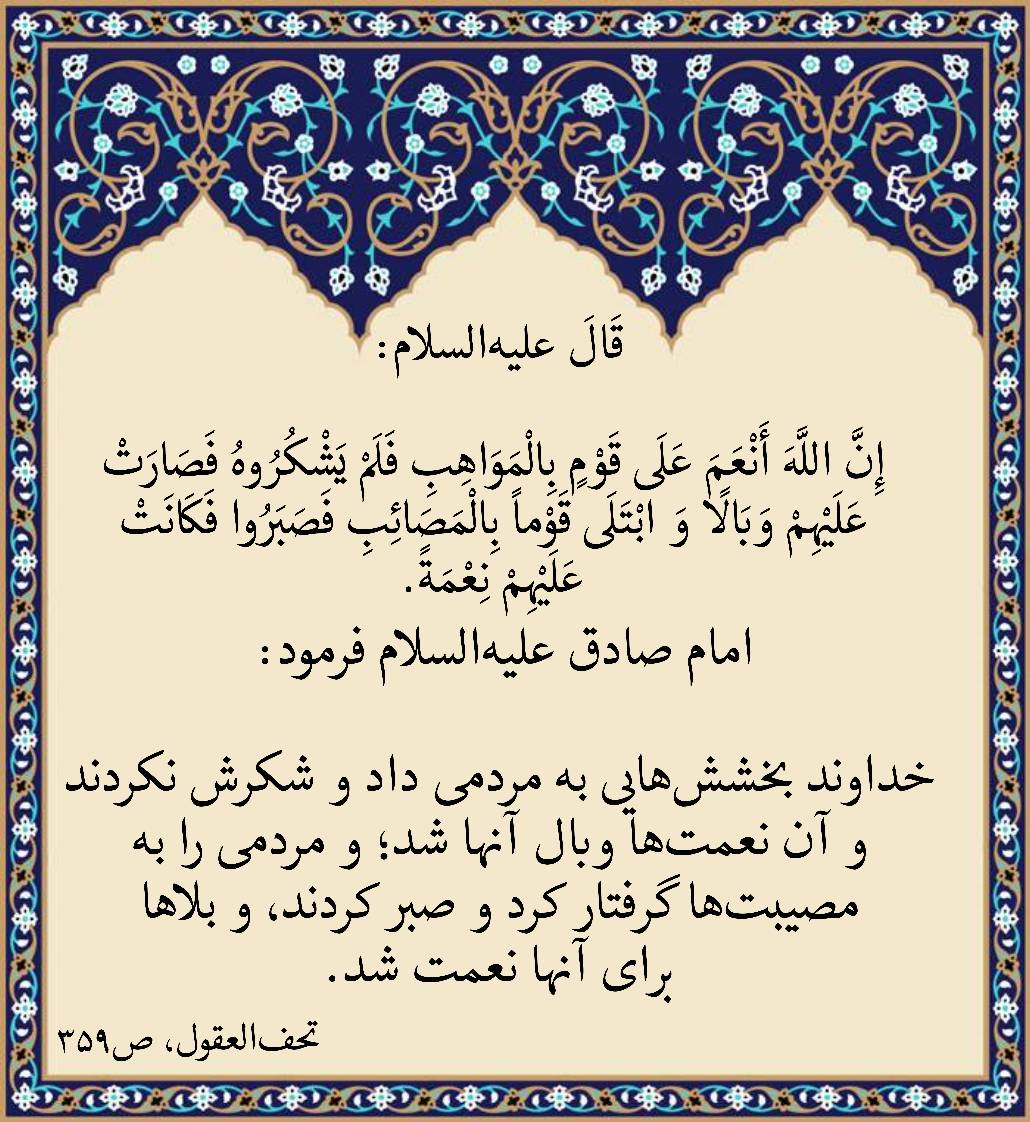 قَالَ علیه‌السلام:
إِنَّ اللَّهَ أَنْعَمَ عَلَى قَوْمٍ بِالْمَوَاهِبِ فَلَمْ يَشْكُرُوهُ فَصَارَتْ
عَلَيْهِمْ وَبَالًا وَ ابْتَلَى قَوْماً بِالْمَصَائِبِ فَصَبَرُوا فَكَانَتْ
عَلَيْهِمْ نِعْمَةً.
امام صادق علیه‌السلام فرمود:
خداوند بخشش‌هایی به مردمی داد و شکرش نکردند
و آن نعمت‌ها وبال آنها شد؛ و مردمی را به
مصیبت‌ها گرفتار کرد و صبر کردند، و بلاها
برای آنها نعمت شد.
تحف‌العقول، ص۳۵۹